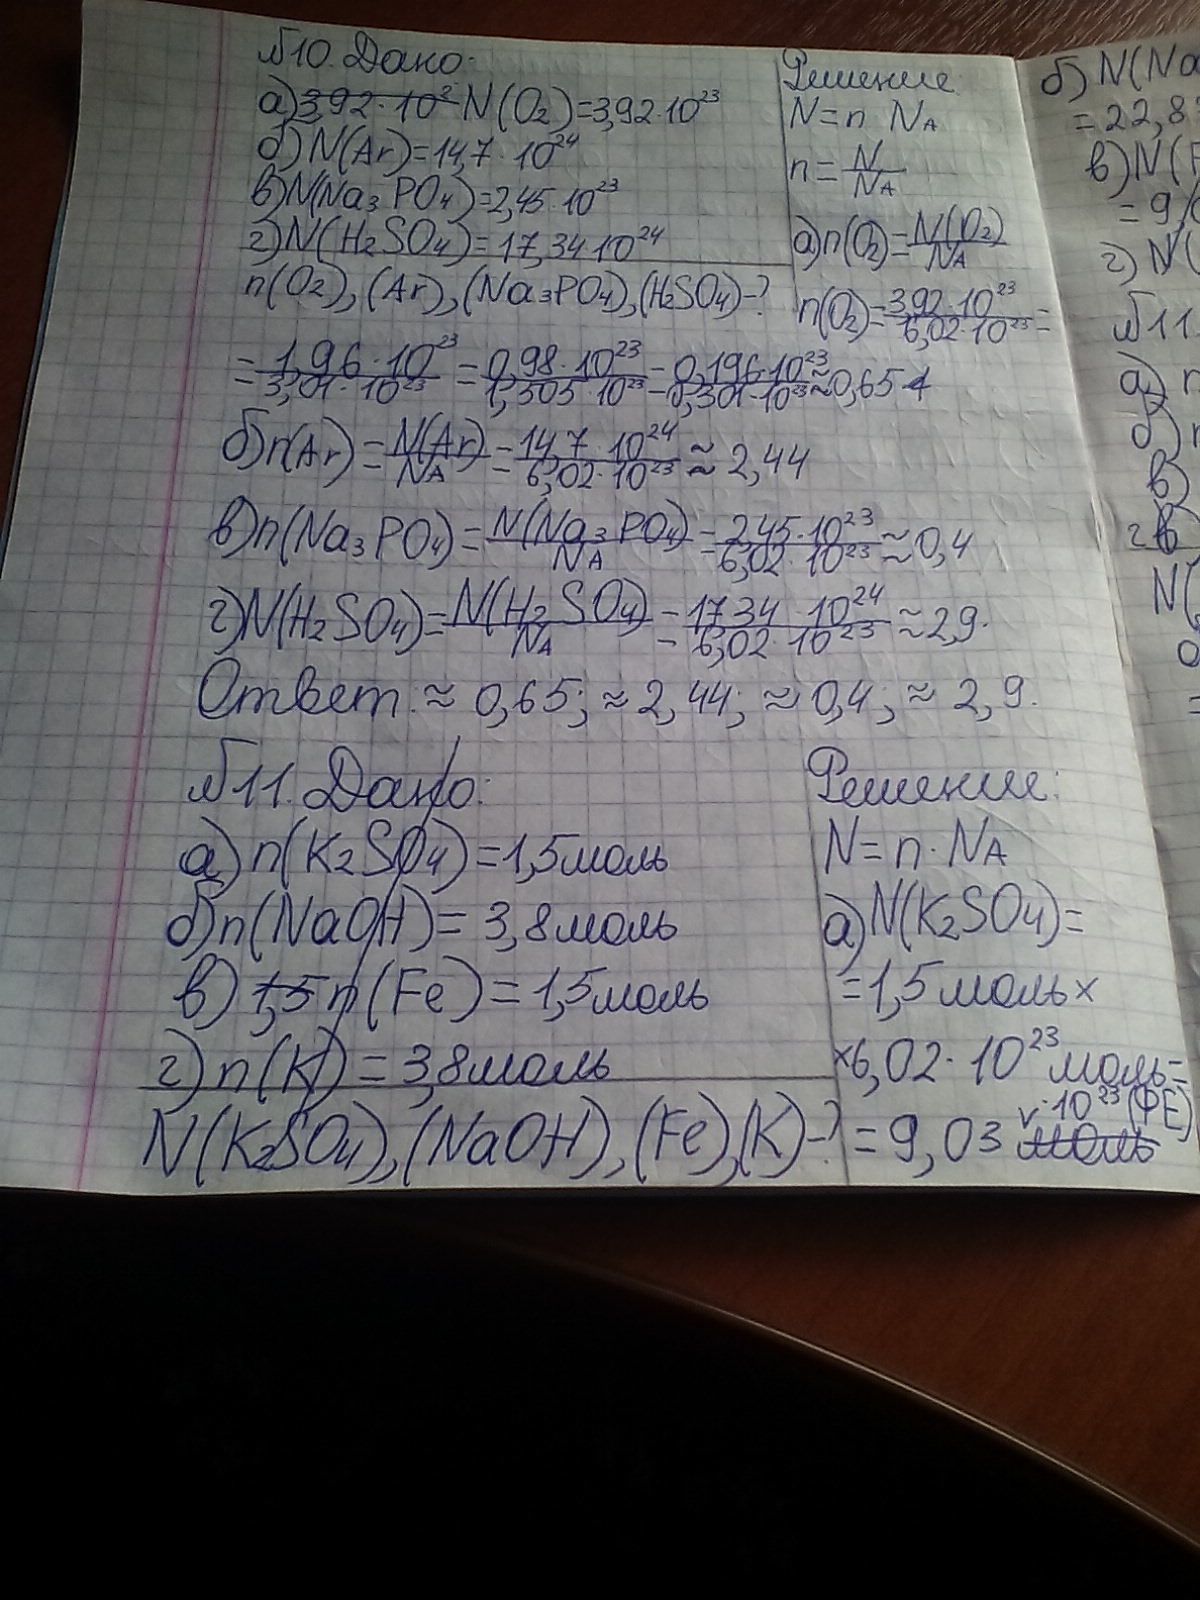 №10. Дано:
а) 3,92·10² N(O₂)=3,92·10²³
б) N(Ar)=14,7·10²⁴
в) N(Na₃PO₄)=2,45·10²³
г) N(H₂SO₄)=17,34·10²⁴
n(O₂), (Ar), (Na₃PO₄), (H₂SO₄)-?
Решение:
N=n NA
n=N/NA
а) n(O₂)=N(O₂)/NA
n(O₂)=3,92·10²³/6,02·10²³=
=1,96·10²³/3,01·10²³=0,98·10²³/1,505·10²³=0,196·10²³/0,301·10²³≈0,65
б) n(Ar)=N(Ar)/NA=14,7·10²⁴/6,02·10²³≈2,44
в) n(Na₃PO₄)=N(Na₃PO₄)/NA=2,45·10²³/6,02·10²³≈0,4
г) N(H₂SO₄)=N(H₂SO₄)/NA=17,34·10²⁴/6,02·10²³≈2,9.
Ответ: ≈0,65; ≈2,44; ≈0,4; ≈2,9.
№11. Дано:
а) n(K₂SO₄)=1,5моль
б) n(NaOH)=3,8моль
в) 1,5 n(Fe)=1,5моль
г) n(K)=3,8моль
N(K₂SO₄), (NaOH), (Fe), (K)-?
Решение:
N=n·NA
а) N(K₂SO₄)=
=1,5моль×
×6,02·10²³моль=
=9,03 моль ·10²³(ФЕ)
б) N(Na
=22,8
в) N(F
=9,
г) N(
№11.
а)
б)
в)
г
N(